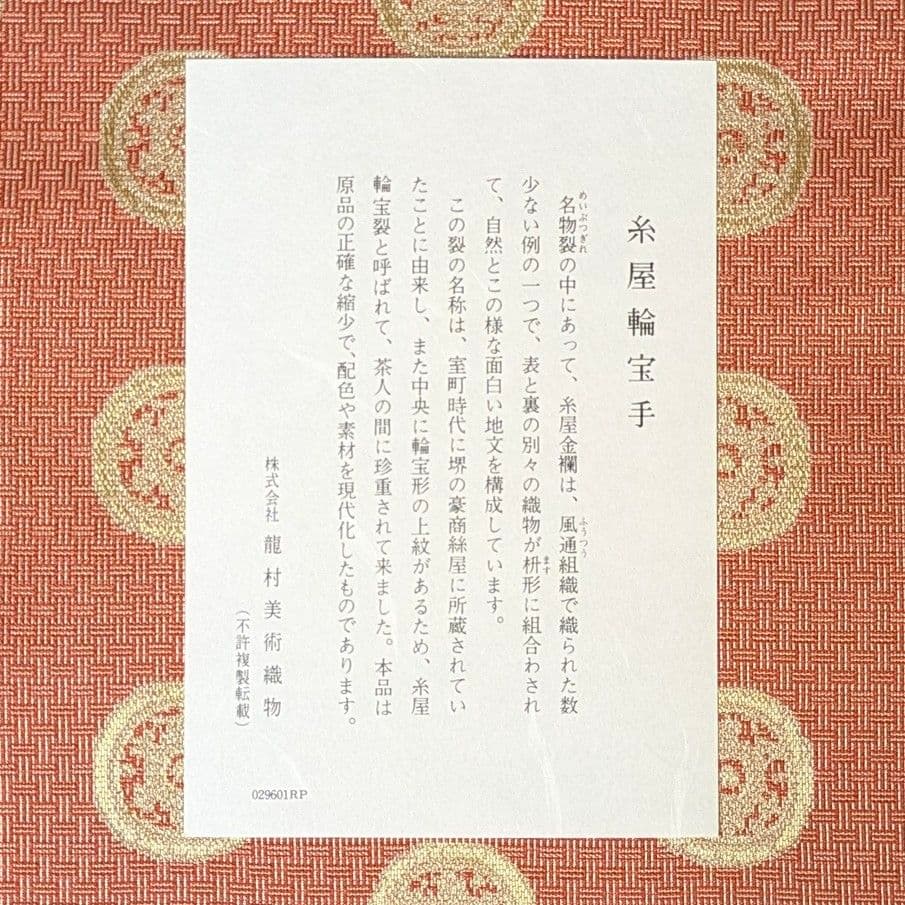 糸屋輪宝手
名物裂の中にあって、糸屋金襴は、風通組織で織られた数
めいぶつぎれ
ふうつう
少ない例の一つで、表と裏の別々の織物が枡形に組合わされ
ます
て、自然とこの様な面白い地文を構成しています。
この裂の名称は、室町時代に堺の豪商絲屋に所蔵されてい
たことに由来し、また中央に輪宝形の上紋があるため、糸屋
輪宝裂と呼ばれて、茶人の間に珍重されて来ました。本品は
原品の正確な縮少で、配色や素材を現代化したものであります。
株式会社 龍村美術織物
（不許複製転載）
029601RP